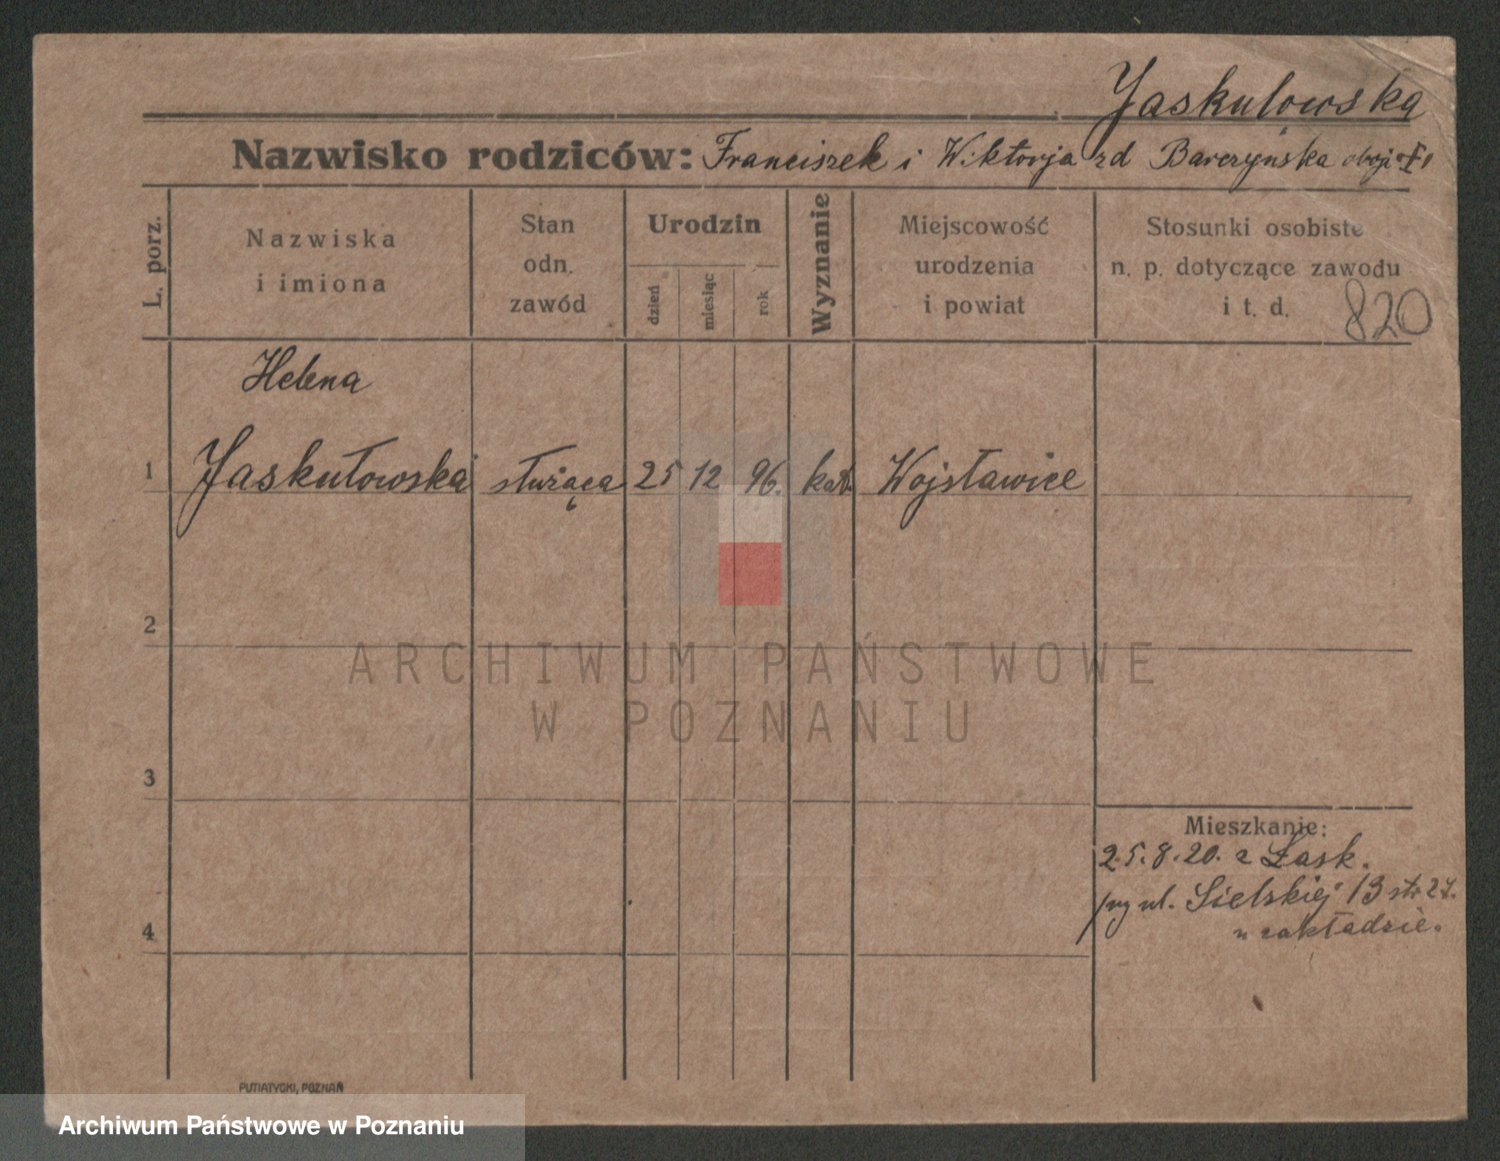 Jaskulowska
Nazwisko rodziców: Franciszek i Wiktorja zd Barczyńska oboje †
L. porz.
Nazwiska
i imiona
Stan
odn.
zawód
Urodzin
dzień
miesiąc
rok
Wyznanie
Miejscowość
urodzenia
i powiat
Stosunki osobiste
n. p. dotyczące zawodu
i t. d.
820
Helena
1 Jaskułowska służąca 25 12 96. kat. Wojsławice
2
3
4
Mieszkanie:
25.8.20. z Łask.
ul. Sielskiej 13 str 27.
w zakładzie.
ARCHIWUM PAŃSTWOWE
W POZNANIU
PUTIATYCKI, POZNAŃ
Archiwum Państwowe w Poznaniu